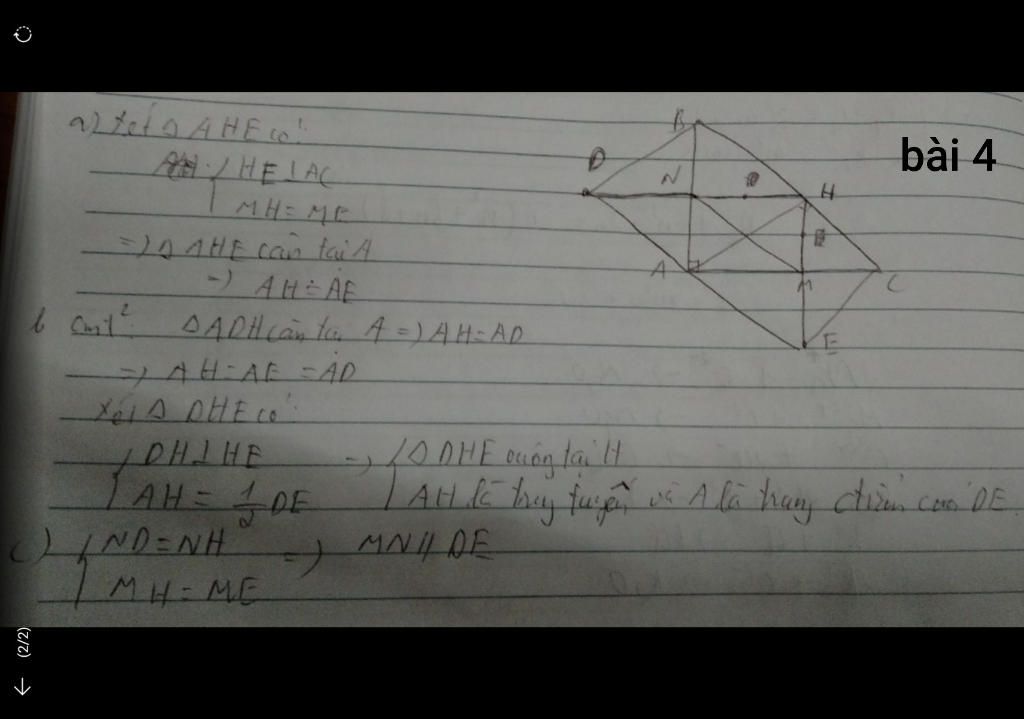 bài 4
a) Xét Δ AHE có:
HE ⊥ AC
MH = ME
=) Δ AHE cân tại A
=) AH = AE
b cmt²: Δ ADH cân tại A =) AH = AD
=) AH = AE = AD
Xét Δ DHE có:
DH ⊥ HE =) Δ DHE vuông tại H
AH = 1/2 DE AH là trung tuyến và A là trung điểm của DE.
c) ND = NH =) MN // DE
MH = ME
B
D
N
H
A
M
C
E
(2/2)